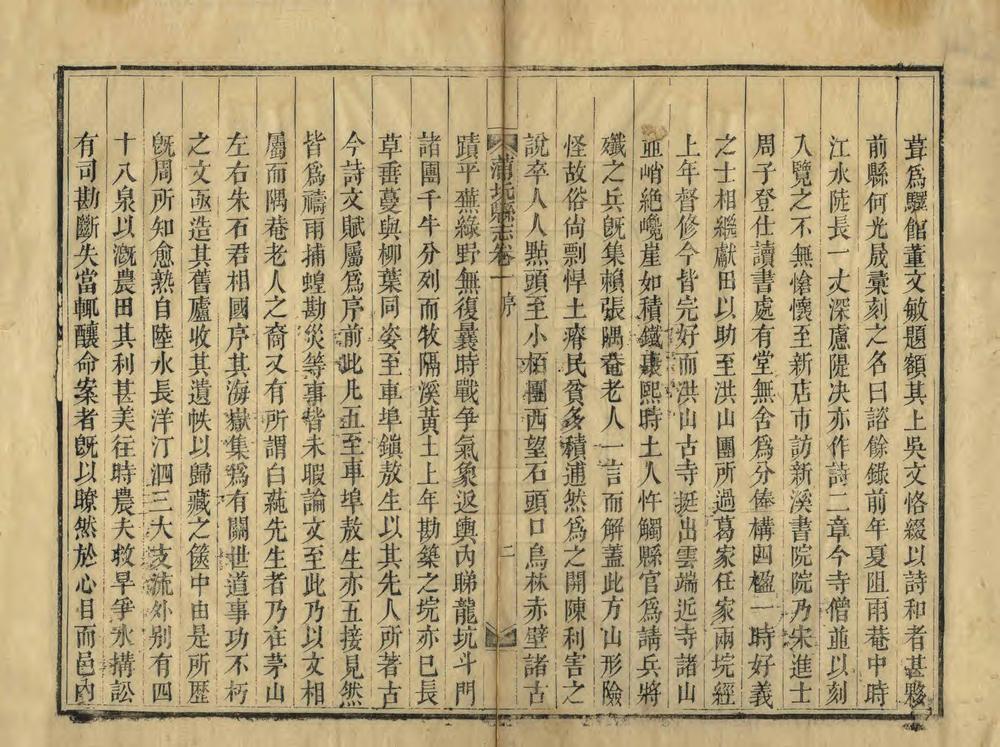 葺爲驛館董文敏題額其上吳文恪綴以詩和者甚夥
前縣何光晟彚刻之名曰諮餘錄前年夏阻雨菴中時
江水陡長一丈深慮隄决亦作詩二章今寺僧並以刻
入覽之不無愴懷至新店市訪新溪書院院乃宋進士
周子登仕讀書處有堂無舍爲分俸構四楹一時好義
之士相繼獻田以助至洪山團所過葛家任家兩垸經
上年督修今皆完好而洪山古寺挺出雲端近寺諸山
並峭絶巉崖如積鐵康熙時土人忤觸縣官爲請兵將
殲之兵旣集賴張隅菴老人一言而解蓋此方山形險
怪故俗尙剽悍土瘠民貧多積逋然爲之開陳利害之
說卒人人㸃頭至小栢團西望石頭口烏林赤壁諸古
蒲圻縣志卷一 序 二
蹟平蕪綠野無復曩時戰爭氣象返輿內睇龍坑斗門
諸團千牛分列而牧隔溪黃土上年勘築之垸亦已長
草垂蔓與柳葉同姿至車埠鎭敖生以其先人所著古
今詩文賦屬爲序前此凡五至車埠敖生亦五接見然
皆爲禱雨捕蝗勘災等事皆未暇論文至此乃以文相
屬而隅菴老人之裔又有所謂白蒓先生者乃在茅山
左右朱石君相國序其海嶽集爲有關世道事功不朽
之文亟造其舊廬收其遺帙以歸藏之篋中由是所歷
旣周所知愈熟自陸水長洋汀泗三大支流外别有四
十八泉以漑農田其利甚美往時農夫救旱爭水搆訟
有司勘斷失當輒釀命案者旣以瞭然於心目而邑內